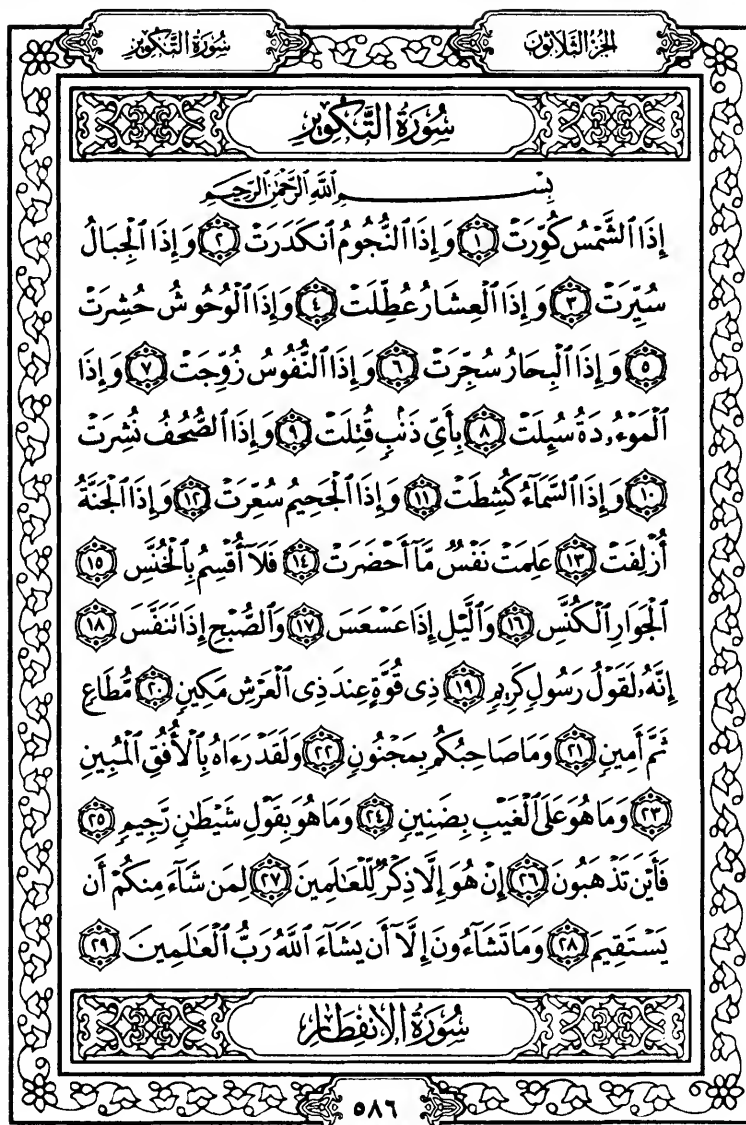 الجزء الثلاثون
سورة التكوير
سُورَةُ التَّكْوِيرِ
بِسْمِ ٱللَّهِ ٱلرَّحْمَٰنِ ٱلرَّحِيمِ
إِذَا ٱلشَّمْسُ كُوِّرَتْ ١ وَإِذَا ٱلنُّجُومُ ٱنكَدَرَتْ ٢ وَإِذَا ٱلْجِبَالُ
سُيِّرَتْ ٣ وَإِذَا ٱلْعِشَارُ عُطِّلَتْ ٤ وَإِذَا ٱلْوُحُوشُ حُشِرَتْ
٥ وَإِذَا ٱلْبِحَارُ سُجِّرَتْ ٦ وَإِذَا ٱلنُّفُوسُ زُوِّجَتْ ٧ وَإِذَا
ٱلْمَوْءُۥدَةُ سُئِلَتْ ٨ بِأَيِّ ذَنۢبٍ قُتِلَتْ ٩ وَإِذَا ٱلصُّحُفُ نُشِرَتْ
١٠ وَإِذَا ٱلسَّمَآءُ كُشِطَتْ ١١ وَإِذَا ٱلْجَحِيمُ سُعِّرَتْ ١٢ وَإِذَا ٱلْجَنَّةُ
أُزْلِفَتْ ١٣ عَلِمَتْ نَفْسٌ مَّآ أَحْضَرَتْ ١٤ فَلَآ أُقْسِمُ بِٱلْخُنَّسِ ١٥
ٱلْجَوَارِ ٱلْكُنَّسِ ١٦ وَٱلَّيْلِ إِذَا عَسْعَسَ ١٧ وَٱلصُّبْحِ إِذَا تَنَفَّسَ ١٨
إِنَّهُۥ لَقَوْلُ رَسُولٍ كَرِيمٍ ١٩ ذِى قُوَّةٍ عِندَ ذِى ٱلْعَرْشِ مَكِينٍ ٢٠ مُّطَاعٍ
ثَمَّ أَمِينٍ ٢١ وَمَا صَاحِبُكُم بِمَجْنُونٍ ٢٢ وَلَقَدْ رَءَاهُ بِٱلْأُفُقِ ٱلْمُبِينِ
٢٣ وَمَا هُوَ عَلَى ٱلْغَيْبِ بِضَنِينٍ ٢٤ وَمَا هُوَ بِقَوْلِ شَيْطَٰنٍ رَّجِيمٍ ٢٥
فَأَيْنَ تَذْهَبُونَ ٢٦ إِنْ هُوَ إِلَّا ذِكْرٌ لِّلْعَٰلَمِينَ ٢٧ لِمَن شَآءَ مِنكُمْ أَن
يَسْتَقِيمَ ٢٨ وَمَا تَشَآءُونَ إِلَّآ أَن يَشَآءَ ٱللَّهُ رَبُّ ٱلْعَٰلَمِينَ ٢٩
سُورَةُ الانفِطَارِ
٥٨٦